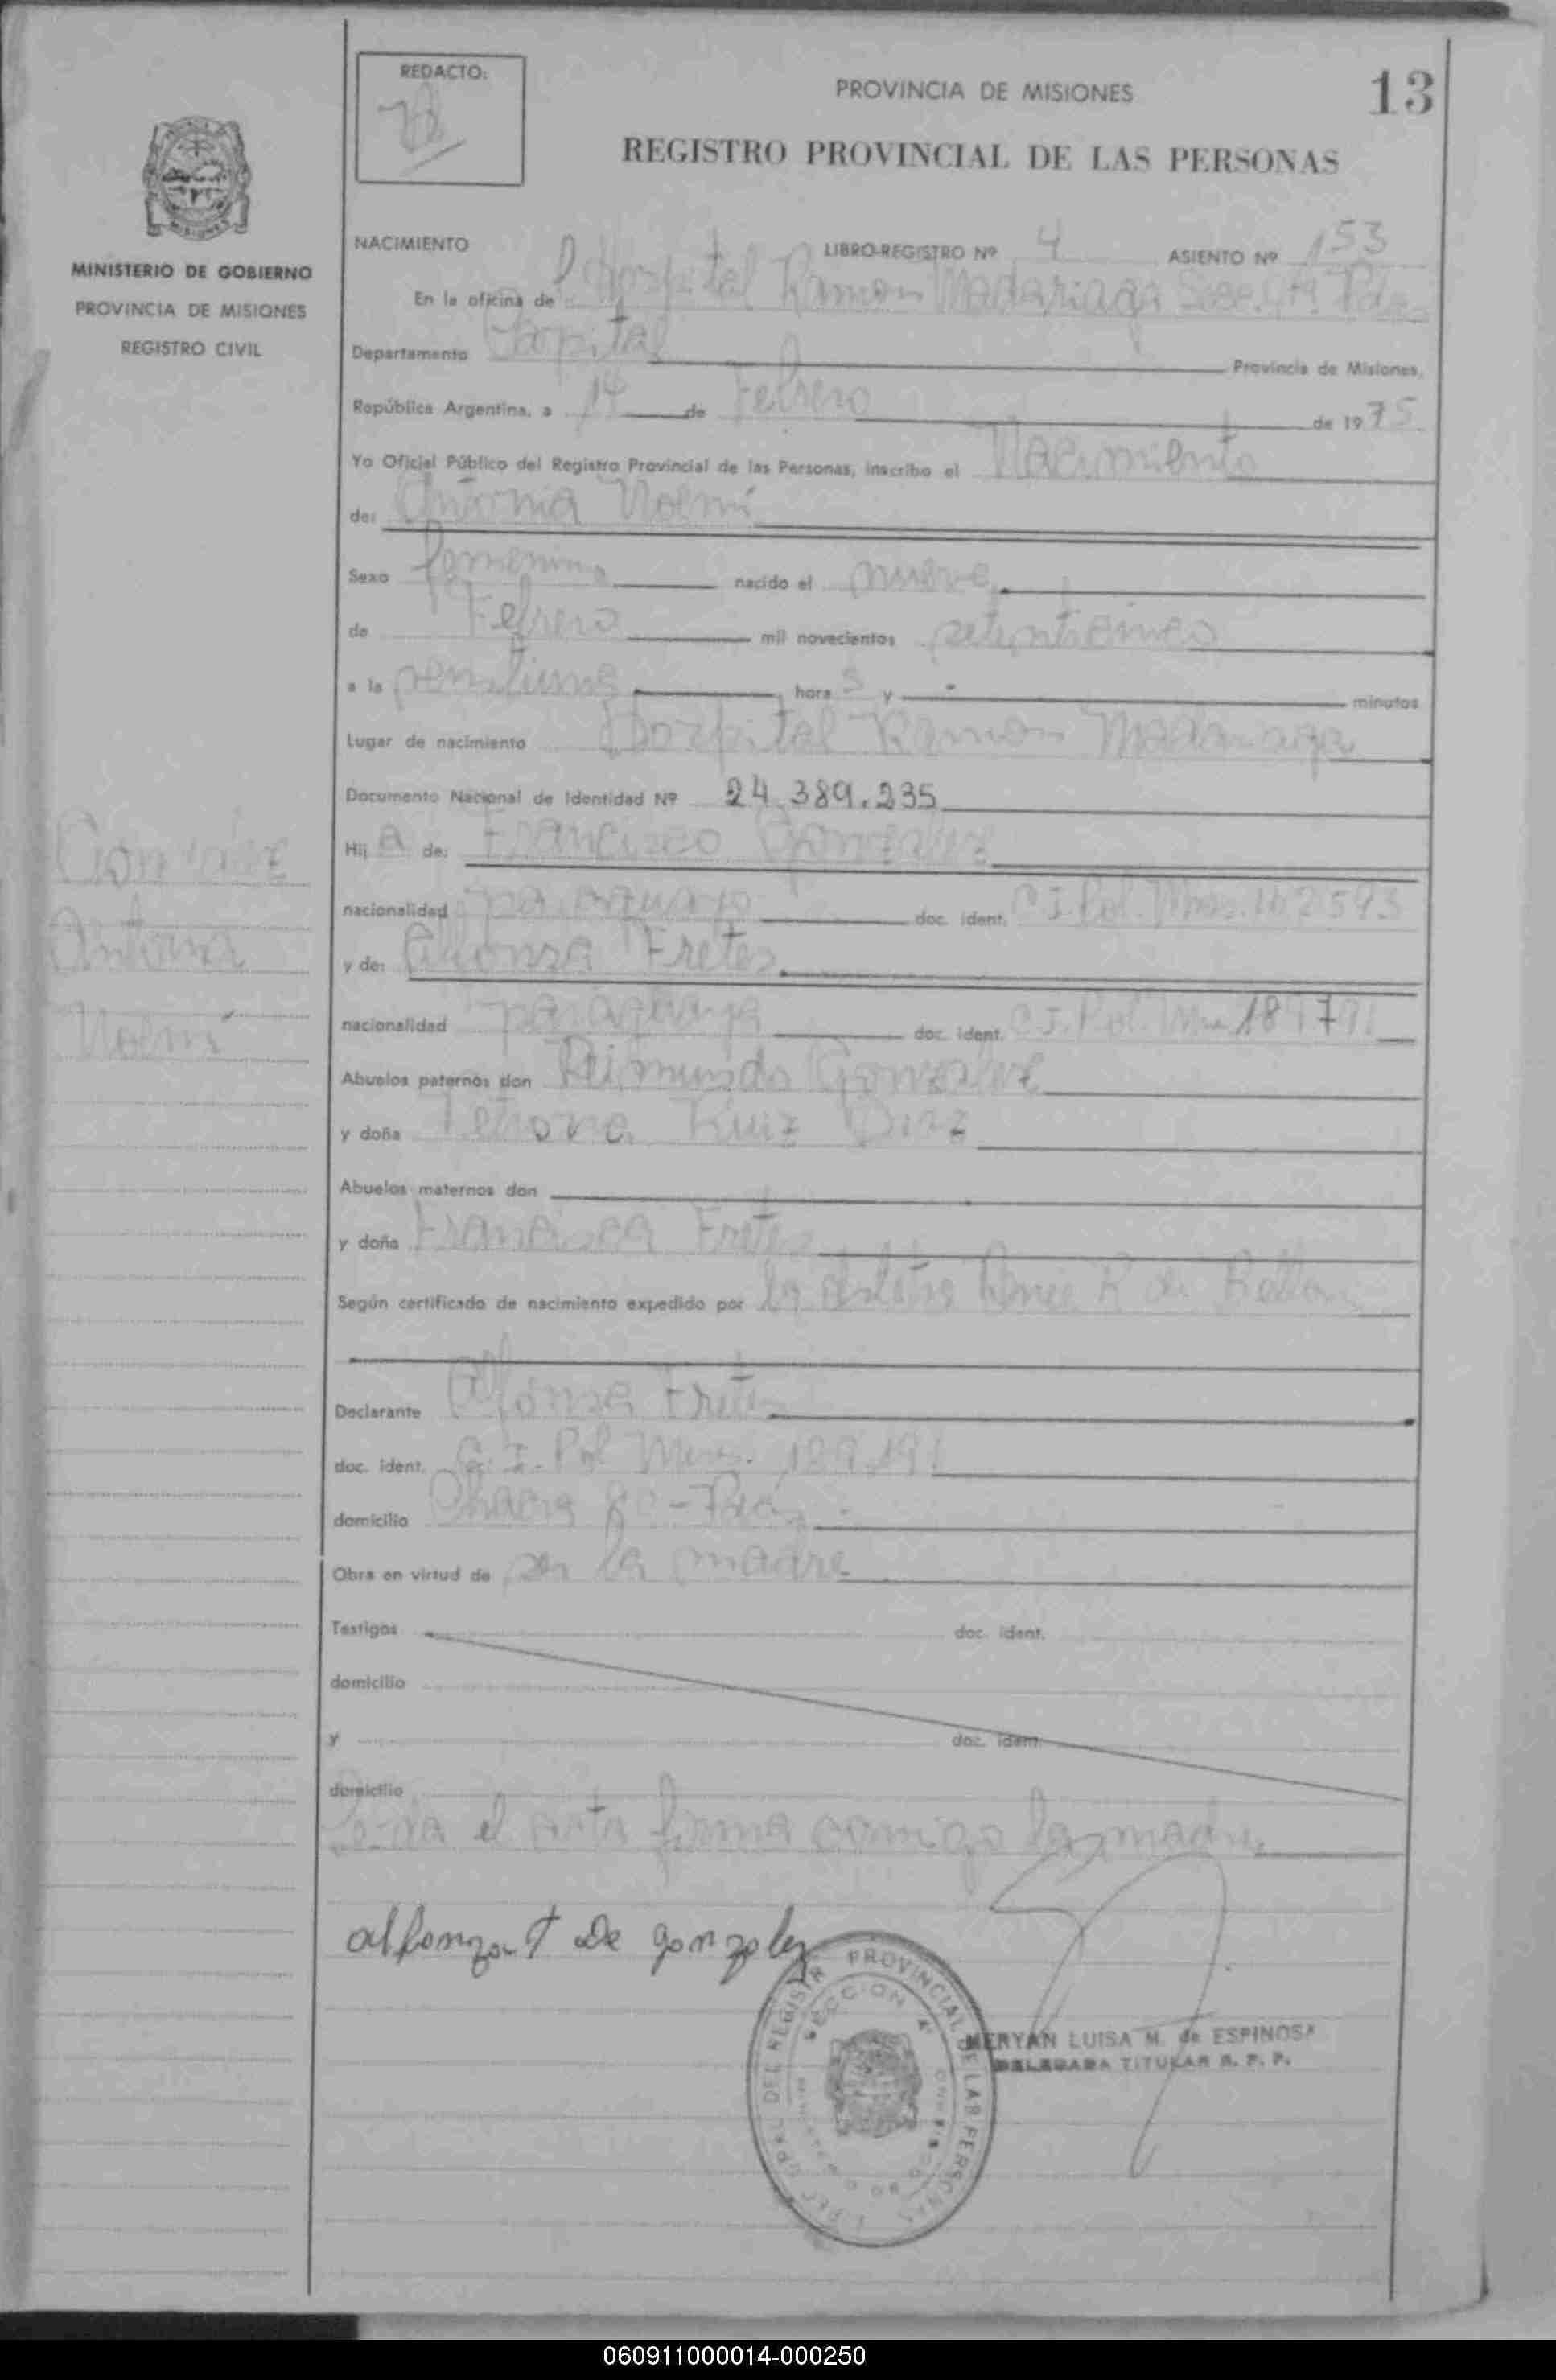 REDACTO:
PROVINCIA DE MISIONES
13
REGISTRO PROVINCIAL DE LAS PERSONAS
MINISTERIO DE GOBIERNO
PROVINCIA DE MISIONES
REGISTRO CIVIL
NACIMIENTO LIBRO-REGISTRO Nº 4 ASIENTO Nº 153
En la oficina de Hospital Ramon Madariaga Secc. 4ta. Pdas
Departamento Capital Provincia de Misiones,
República Argentina, a 14 de Febrero de 1975
Yo Oficial Público del Registro Provincial de las Personas, inscribo el Nacimiento
de: Antonia Noemí
Sexo femenino nacido el nueve
de Febrero mil novecientos setenticinco
a la hora 3 y - minutos
Lugar de nacimiento Hospital Ramon Madariaga
Documento Nacional de Identidad Nº 24.389.235
Hij a de: Francisco Gonzalez
nacionalidad paraguayo doc. ident. C.I. Pol. Mnes. 162593
y de: Alfonsa Fretes
nacionalidad paraguaya doc. ident. C.I. Pol
Abuelos paternos don Reimundo Gonzalez
y doña Petrona Ruiz Diaz
Abuelos maternos don
y doña Francisca Fretes
Según certificado de nacimiento expedido por la
Declarante Alfonsa Fretes
doc. ident. C.I. Pol
domicilio Chacra 80-Pdas
Obra en virtud de ser la madre
Testigos doc. ident.
domicilio
y doc. ident.
domicilio
Leida el acta firma comigo la madre
Gonzalez
Antonia
Noemí
alfonza F De gonzalez
MERYAN LUISA M. de ESPINOSA
DELEGADA TITULAR R. P. P.
DEL REGISTR PROVINCIAL DE LAS PERSONAS
SECCION 4ª
060911000014-000250